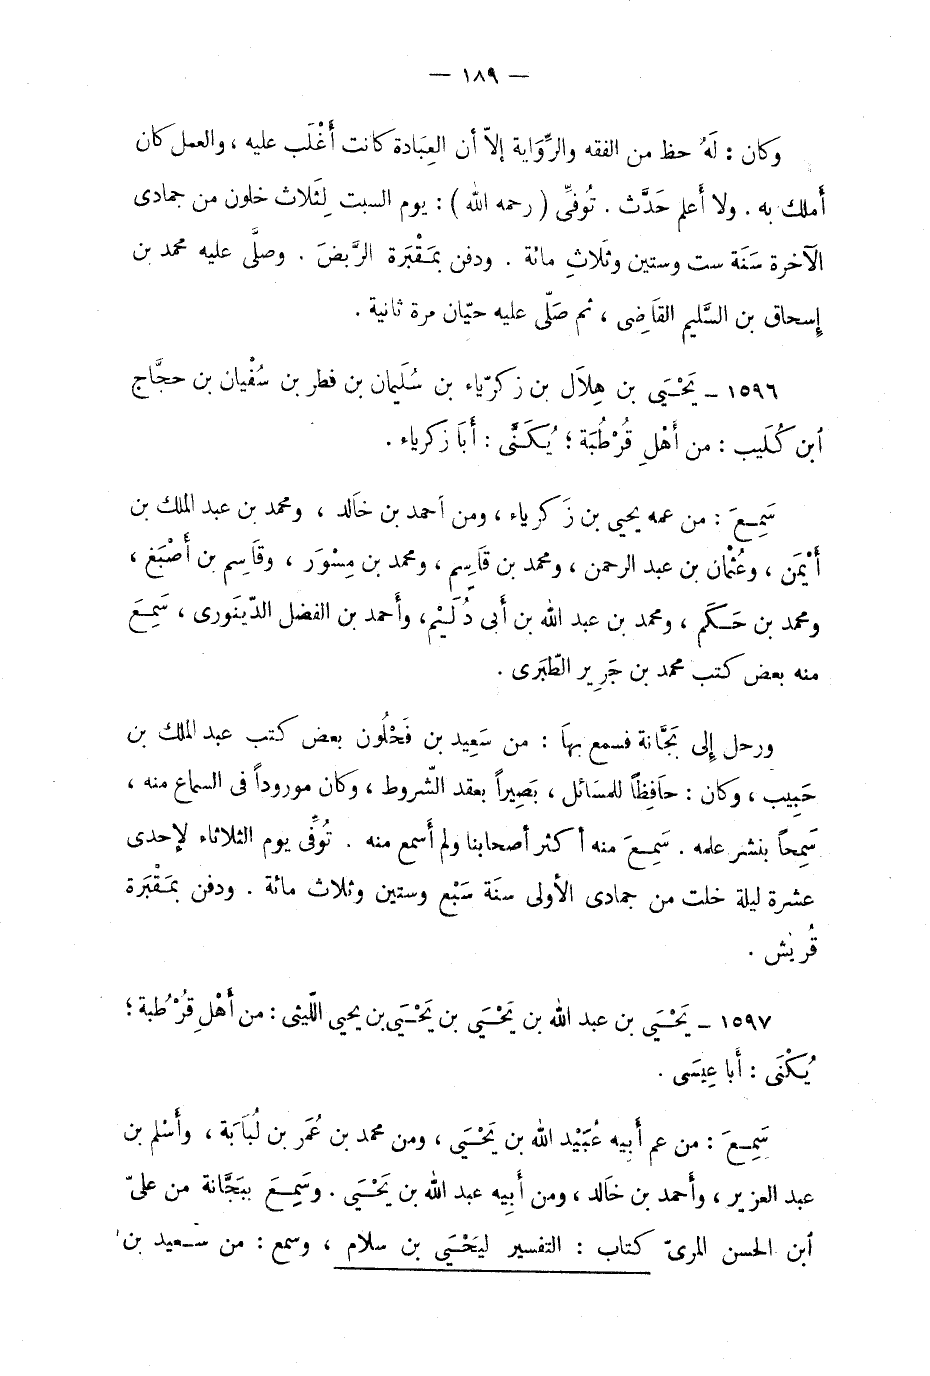 — ١٨٩ —
وكان : لَهُ حظ من الفقه والرِّوَاية إلاّ أن العِبَادة كانت أَغْلَب عليه ، والعمل كان
أَملك به . ولا أَعلم حَدَّث . تُوفىِّ ( رحمه الله ) : يوم السبت لِثَلاث خلون من جمادى
الآخرة سَنَة ست وستين وثَلاثِ مائة . ودفن بمَقْبَرة الرَّبضَ . وصلَّى عليه محمد بن
إِسحاق بن السَّليم القَاضِى ، ثم صَلّى عليه حيّان مرة ثانية .
١٥٩٦ – يَحْيَى بن هِلاَل بن زكرّياء بن سُلَيمان بن فطر بن سُفْيان بن حجَّاج
ابن كُلَيب : من أَهْلِ قُرْطُبَة ؛ يُكَنَّى : أَبَا زكرياء .
سَمِعَ : من عمه يحيى بن زَكرياء ، ومن أحمد بن خَالد ، ومحمد بن عبد الملك بن
أَيْمَن ، وعُثْمان بن عبد الرحمن ، ومحمد بن قَاسِم ، ومحمد بن مِسْوَر ، وقَاسِم بن أَصْبَغ ،
ومحمد بن حَكَم ، ومحمد بن عبد الله بن أَبى دُلَيْم، وأَحمد بن الفضل الدّينَورى ، سَمِعَ
منه بعض كتب محمد بن جَرِير الطّبَرى .
ورحل إِلى بَجَّانة فسمع بهاَ : من سَعِيد بن فَحْلُون بعض كتب عبد الملك بن
حَبِيب ، وكان : حاَفِظاً للمسَائل ، بَصِيراً بعقد الشّروط ، وكان موروداً فى السماع منه ،
سَمِحاً بنشر علمه . سَمِعَ منه أكثر أصحابنا ولم أَسمع منه . تُوفِّى يوم الثلاثاء لإحدى
عشرة ليلة خلت من جمادى الأولى سنَة سَبْع وستين وثلاث مائة . ودفن بمَقْبَرة
قُريْش .
١٥٩٧ – يَحْيَى بن عبد الله بن يَحْيَى بن يَحْيَى بن يحيى اللّيثى : من أَهْلِ قُرْطُبة ؛
يُكْنَى : أَبا عِيسَى .
سَمِعَ : من عم أَبِيه عُبَيْد الله بن يَحْيَى ، ومن محمد بن عُمَر بن لُبَابَة ، وأَسْلم بن
عبد العزير ، وأَحمد بن خَالد ، ومن أَبِيه عبد الله بن يَحْيَى . وسَمِعَ ببَجَّانة من علىّ
ابن الحسن المرىّ كتاب : التفسير ليَحْيَى بن سلام ، وسمع : من سَعيد بن